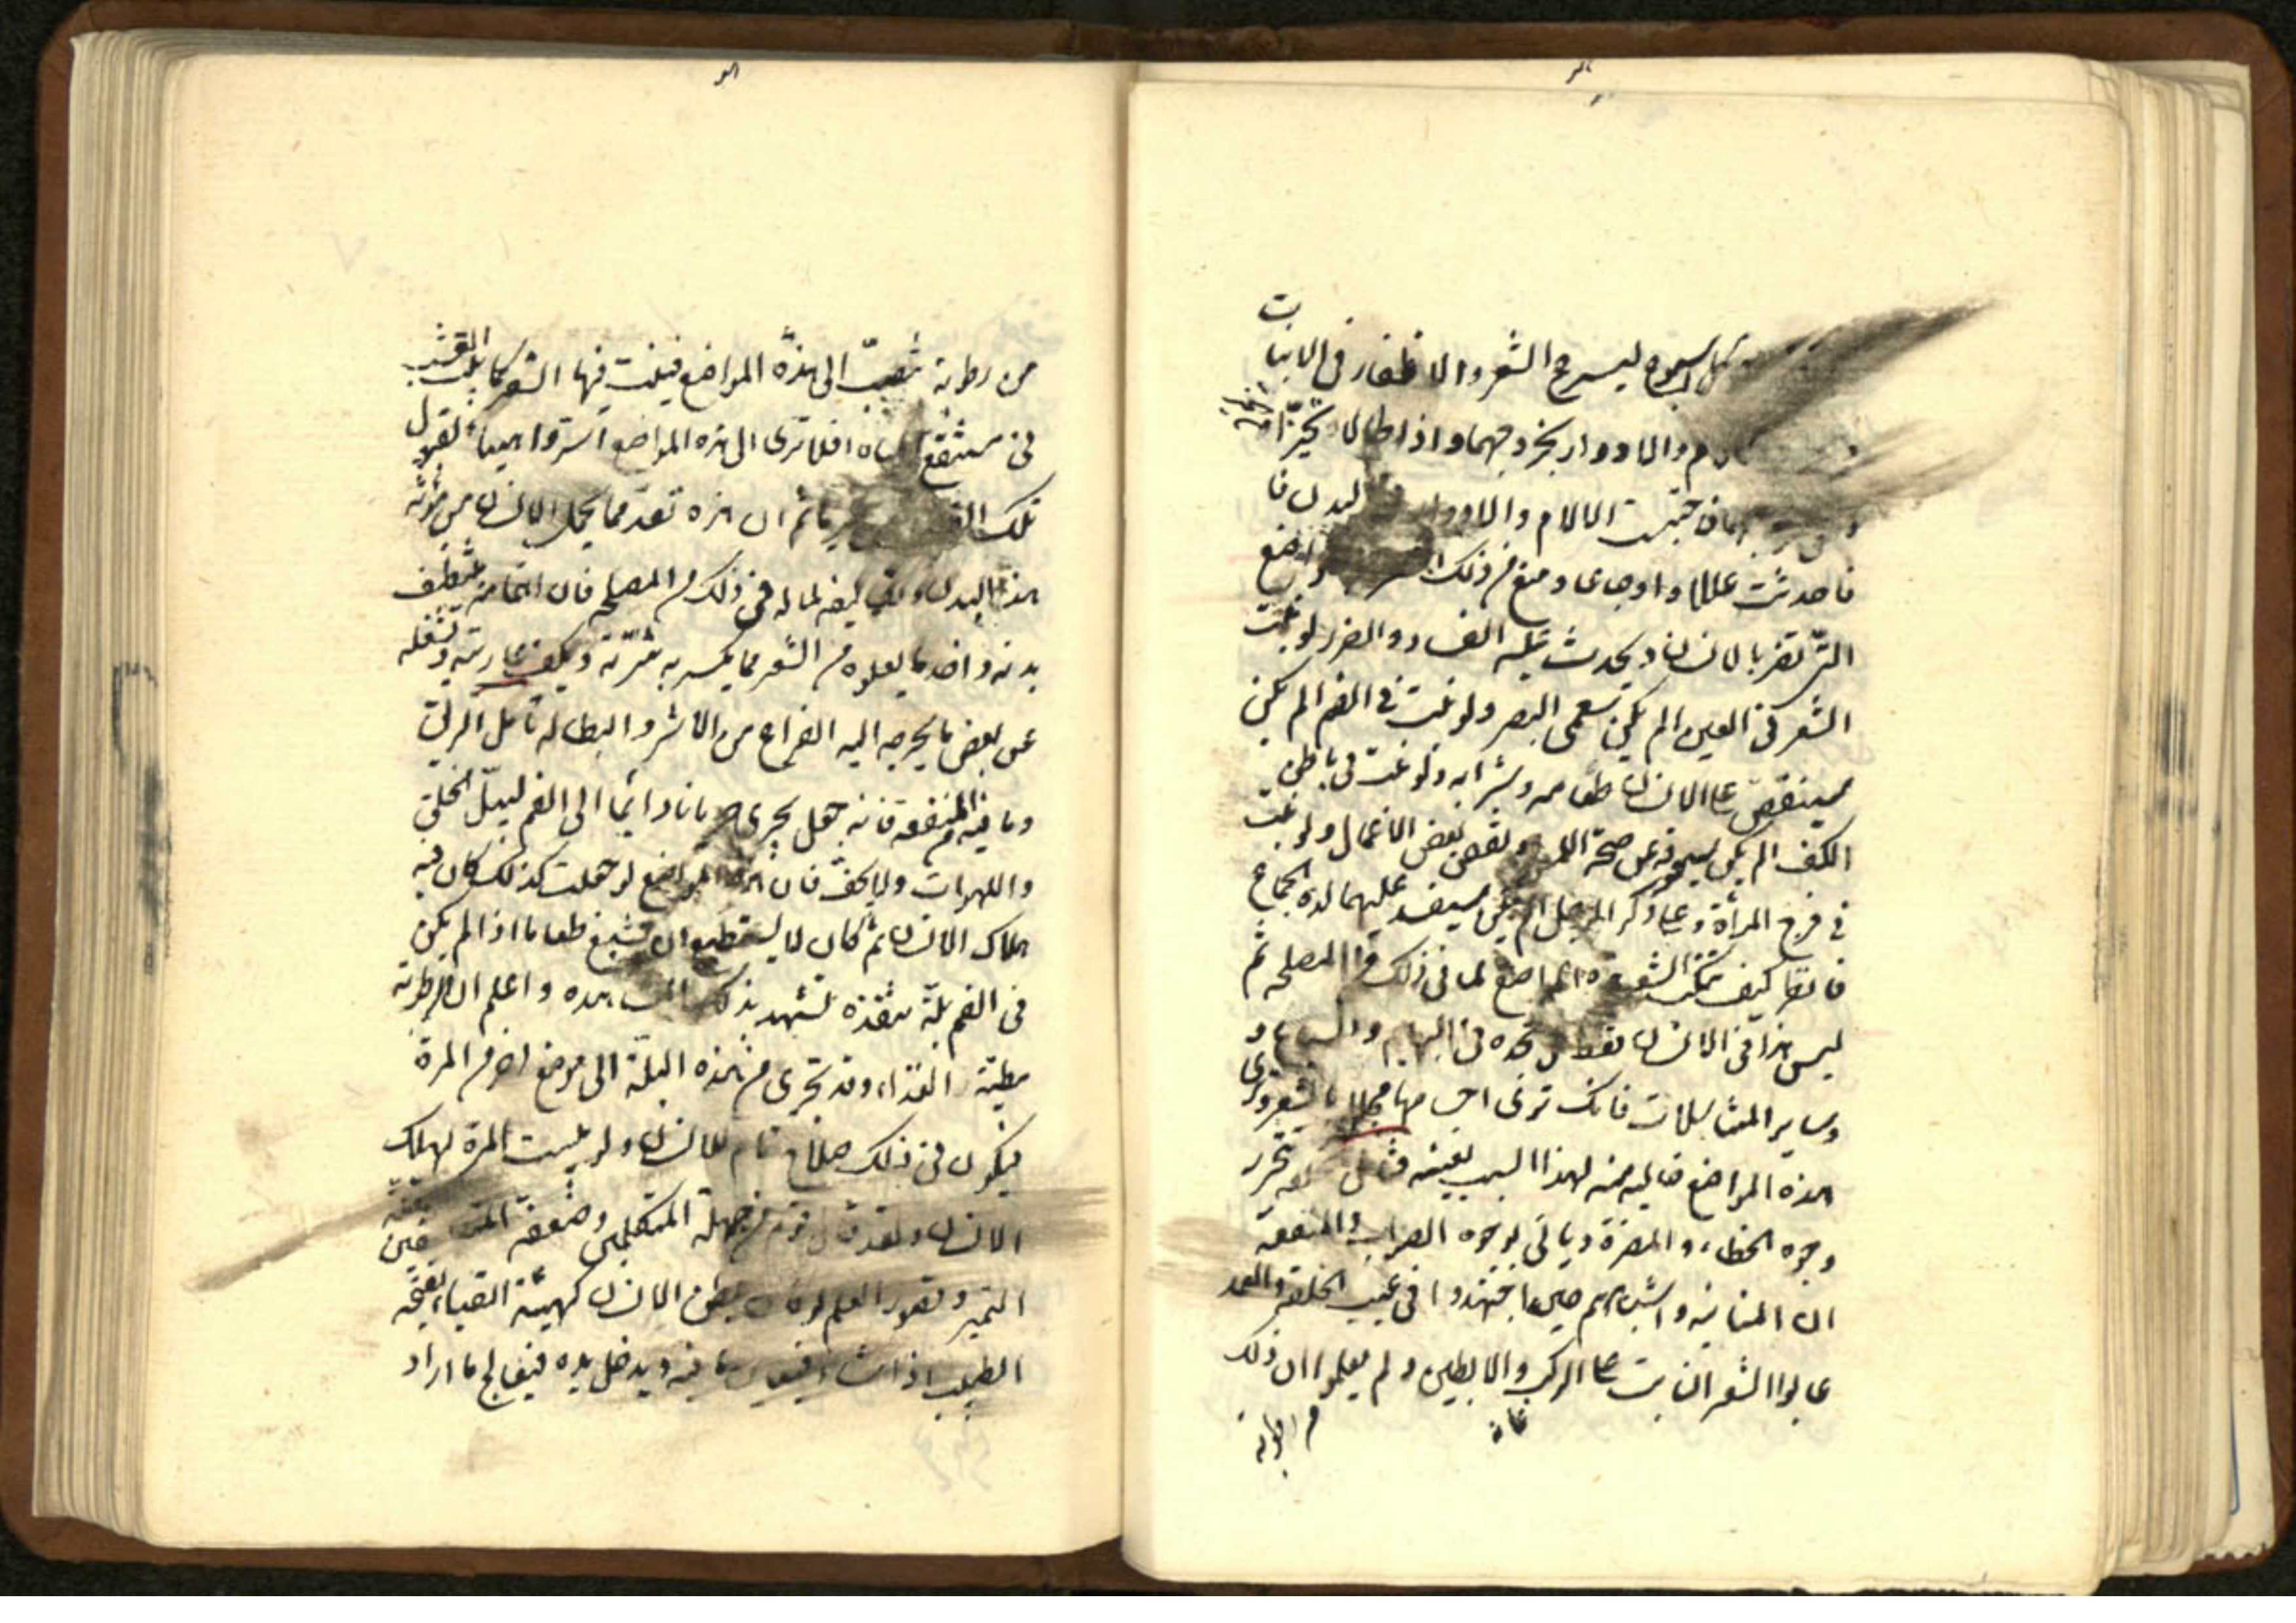 كل اسبوع ليسرع الشعر والاظفار في النبات
والادواء بخروجهما واذا طالا تحيرا
حبست الالام والادواء البدن فا
فاحدثت عللا واوجاعا ومنع من ذلك المواضع
التي تضر بالانسان ويحدث عليه الفساد والضرر لو نبت
الشعر في العين الم يكن سيعمى البصر ولو نبت في الفم الم يكن
سينغص على الانسان طعامه وشرابه ولو نبت في باطن
الكف الم يكن سيعوقه عن صحة اللمس وبعض الاعمال ولو نبت
في فرج المرأة وعلى ذكر الرجل الم يكن سيفسد عليهما لذة الجماع
فانظر كيف تنكب الشعر هذه المواضع لما في ذلك من المصلحة ثم
ليس هذا في الانسان فقط بل تجده في البهائم والسباع و
وساير المتناسلات فانك ترى اجسامها مجللا بالشعر وترى
هذه المواضع خالية منه لهذا السبب بعينه فتأمل الخلقة كيف تتحرز
وجوه الخطاء والمضرة وياتي بوجوه الصواب والمنفعة
ان المنانية واشباههم حين اجتهدوا في عيب الخلقة والعمد
عابوا الشعر النابت على الركب والابطين ولم يعلموا ان ذلك
من رطوبة
من رطوبة تنصب الى هذه المواضع فينبت فيها الشعر كما ينبت العشب
في مستنقع المياه افلا ترى الى هذه المواضع استر واهيأ لقبول
تلك الفضلة من غيرها ثم ان هذه تعد مما يحمل الانسان من مؤنة
هذا البدن وتكاليفه لما له في ذلك من المصلحة فان اهتمامه بتنظيف
بدنه واخذ ما يعلوه من الشعر مما يكسر به شرته ويكف عاديته ويشغله
عن بعض ما يخرجه اليه الفراغ من الاشر والبطالة تأمل الريق
وما فيه من المنفعة فانه جعل يجري جريانا دائما الى الفم ليبل الحلق
واللهوات ولا يجف فان هذه المواضع لو جعلت كذلك كان فيه
هلاك الانسان ثم كان لا يستطيع ان يسيغ طعاما اذا لم يكن
في الفم بلة تنفذه تشهد بذلك المشاهدة واعلم ان الرطوبة
مطية الغذاء وقد تجري من هذه البلة الى موضع اخر من المرة
فيكون في ذلك صلاح تام للانسان ولو يبست المرة لهلك
الانسان ولقد قال قوم من جهلة المتكلمين وضعفة المتفلسفين بقلة
التميز وقصور العلم لو كان بطن الانسان كهيئة القباء يفتحه
الطبيب اذا شاء فيعاين ما فيه ويدخل يده فيعالج ما اراد